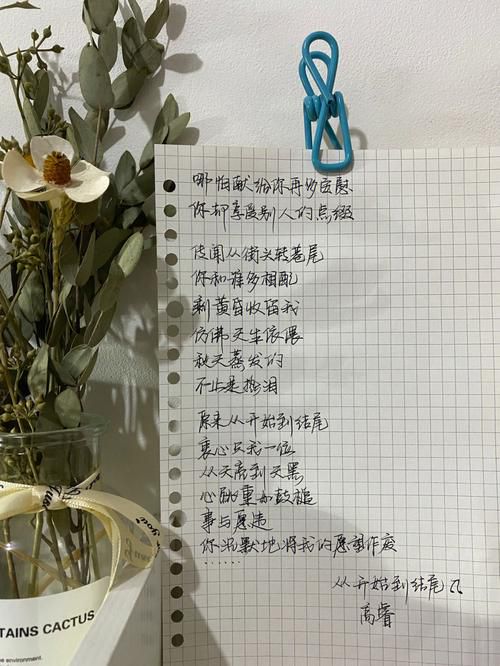 哪怕献给你再多安慰
你却享受别人的点缀
传闻从街头转巷尾
你和谁多相配
剩黄昏收留我
仿佛天生依偎
秋天蒸发的
不止是热泪
原来从开始到结尾
衷心只我一位
从天亮到天黑
心跳重如鼓槌
事与愿违
你沉默地将我的愿望作废
……
从开始到结尾
高睿
TAINS CACTUS
environment.